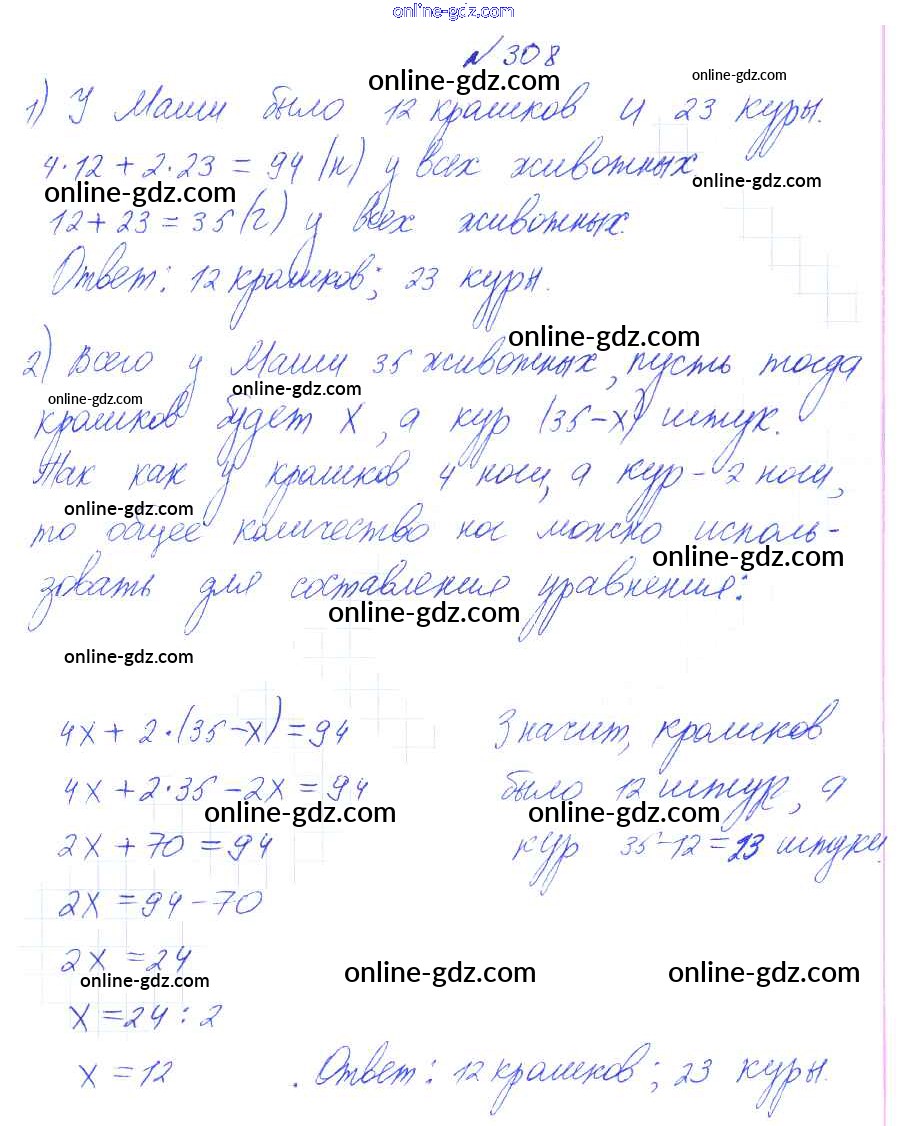 online-gdz.com
№ 308
online-gdz.com
online-gdz.com
1) У Маши было 12 кроликов и 23 куры.
4·12 + 2·23 = 94 (н) у всех животных
online-gdz.com
online-gdz.com
12 + 23 = 35 (г) у всех животных.
Ответ: 12 кроликов; 23 куры.
online-gdz.com
2) Всего у Маши 35 животных, пусть тогда
online-gdz.com
online-gdz.com
кроликов будет х, а кур (35-х) штук.
Так как у кроликов 4 ноги, а кур - 2 ноги,
online-gdz.com
то общее количество ног можно исполь-
online-gdz.com
зовать для составления уравнения:
online-gdz.com
online-gdz.com
4х + 2·(35-х) = 94
4х + 2·35 - 2х = 94
online-gdz.com
2х + 70 = 94
2х = 94 - 70
2х = 24
online-gdz.com
х = 24 : 2
х = 12
Значит, кроликов
было 12 штук, а
online-gdz.com
кур 35-12=23 штуки.
online-gdz.com
online-gdz.com
. Ответ: 12 кроликов; 23 куры.